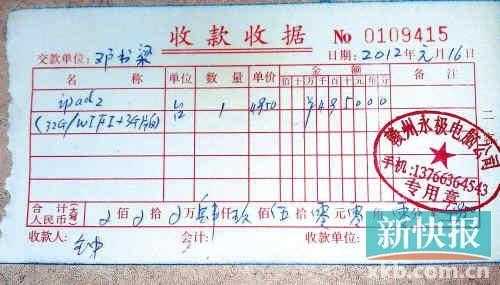 收款收据 No 0109415
交款单位: 邓书梁 日期: 2012年元月16日
名 称 单位 数量 单价 金额 备注
佰十万千百十元角分
ipad2 台 1 4950 ¥4950.00
(32G/WIFI+3G)
合计(大写)
人民币 佰 拾 万 肆仟玖佰伍拾零元零角 分
收款人: 会计: 收款单位:
赣州永极电脑公司
手机:13766364543
专用章
新快报
xkb.com.cn